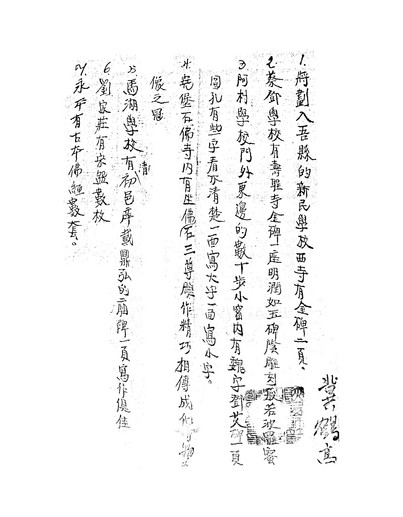 1. 將劃入吾縣的新民學校西寺有金碑二頁。
2. 蔡鄧學校有壽聖寺金碑一座明潤如玉碑陰雕刻般若波羅蜜
3. 阿村學校門外東邊的數十步小窑内有魏字鄧艾碑一頁
因孔有些字看不清楚一面寫大字一面寫小字。
4. 堯堡石佛寺内有坐佛石三尊雕作精巧相傳成化
像之
5. 馬湖學校有清初邑庠戴鼎弘的廟碑一頁寫作俱佳
6. 劉家莊有宋盤數枚
7. 永平有古本佛經數大套。